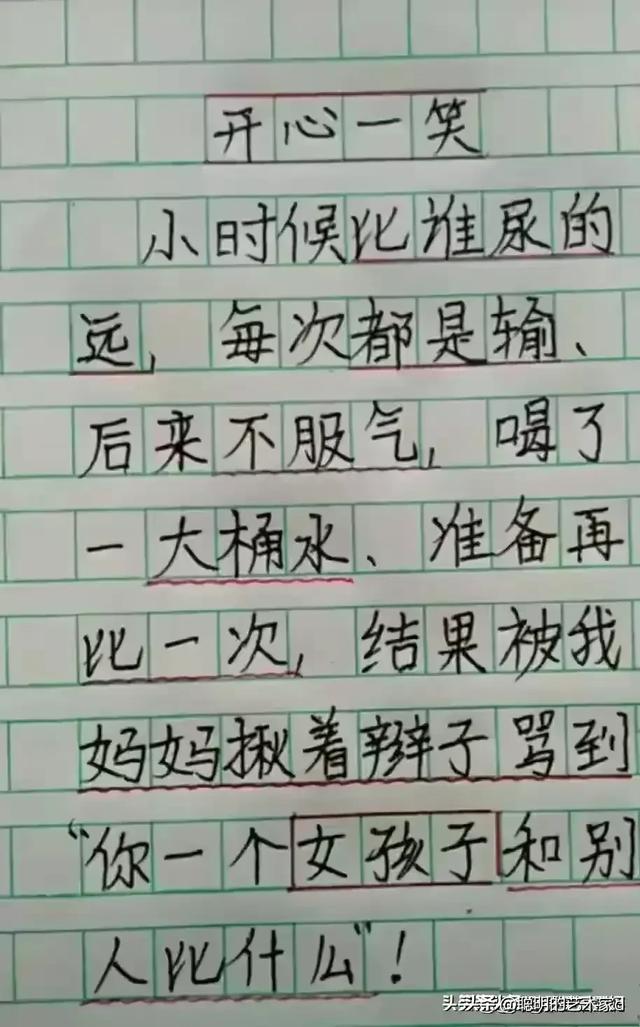 开心一笑
小时候比谁尿的
远,每次都是输、
后来不服气,喝了
一大桶水、准备再
比一次,结果被我
妈妈揪着辫子骂到
“你一个女孩子和别
人比什么”!